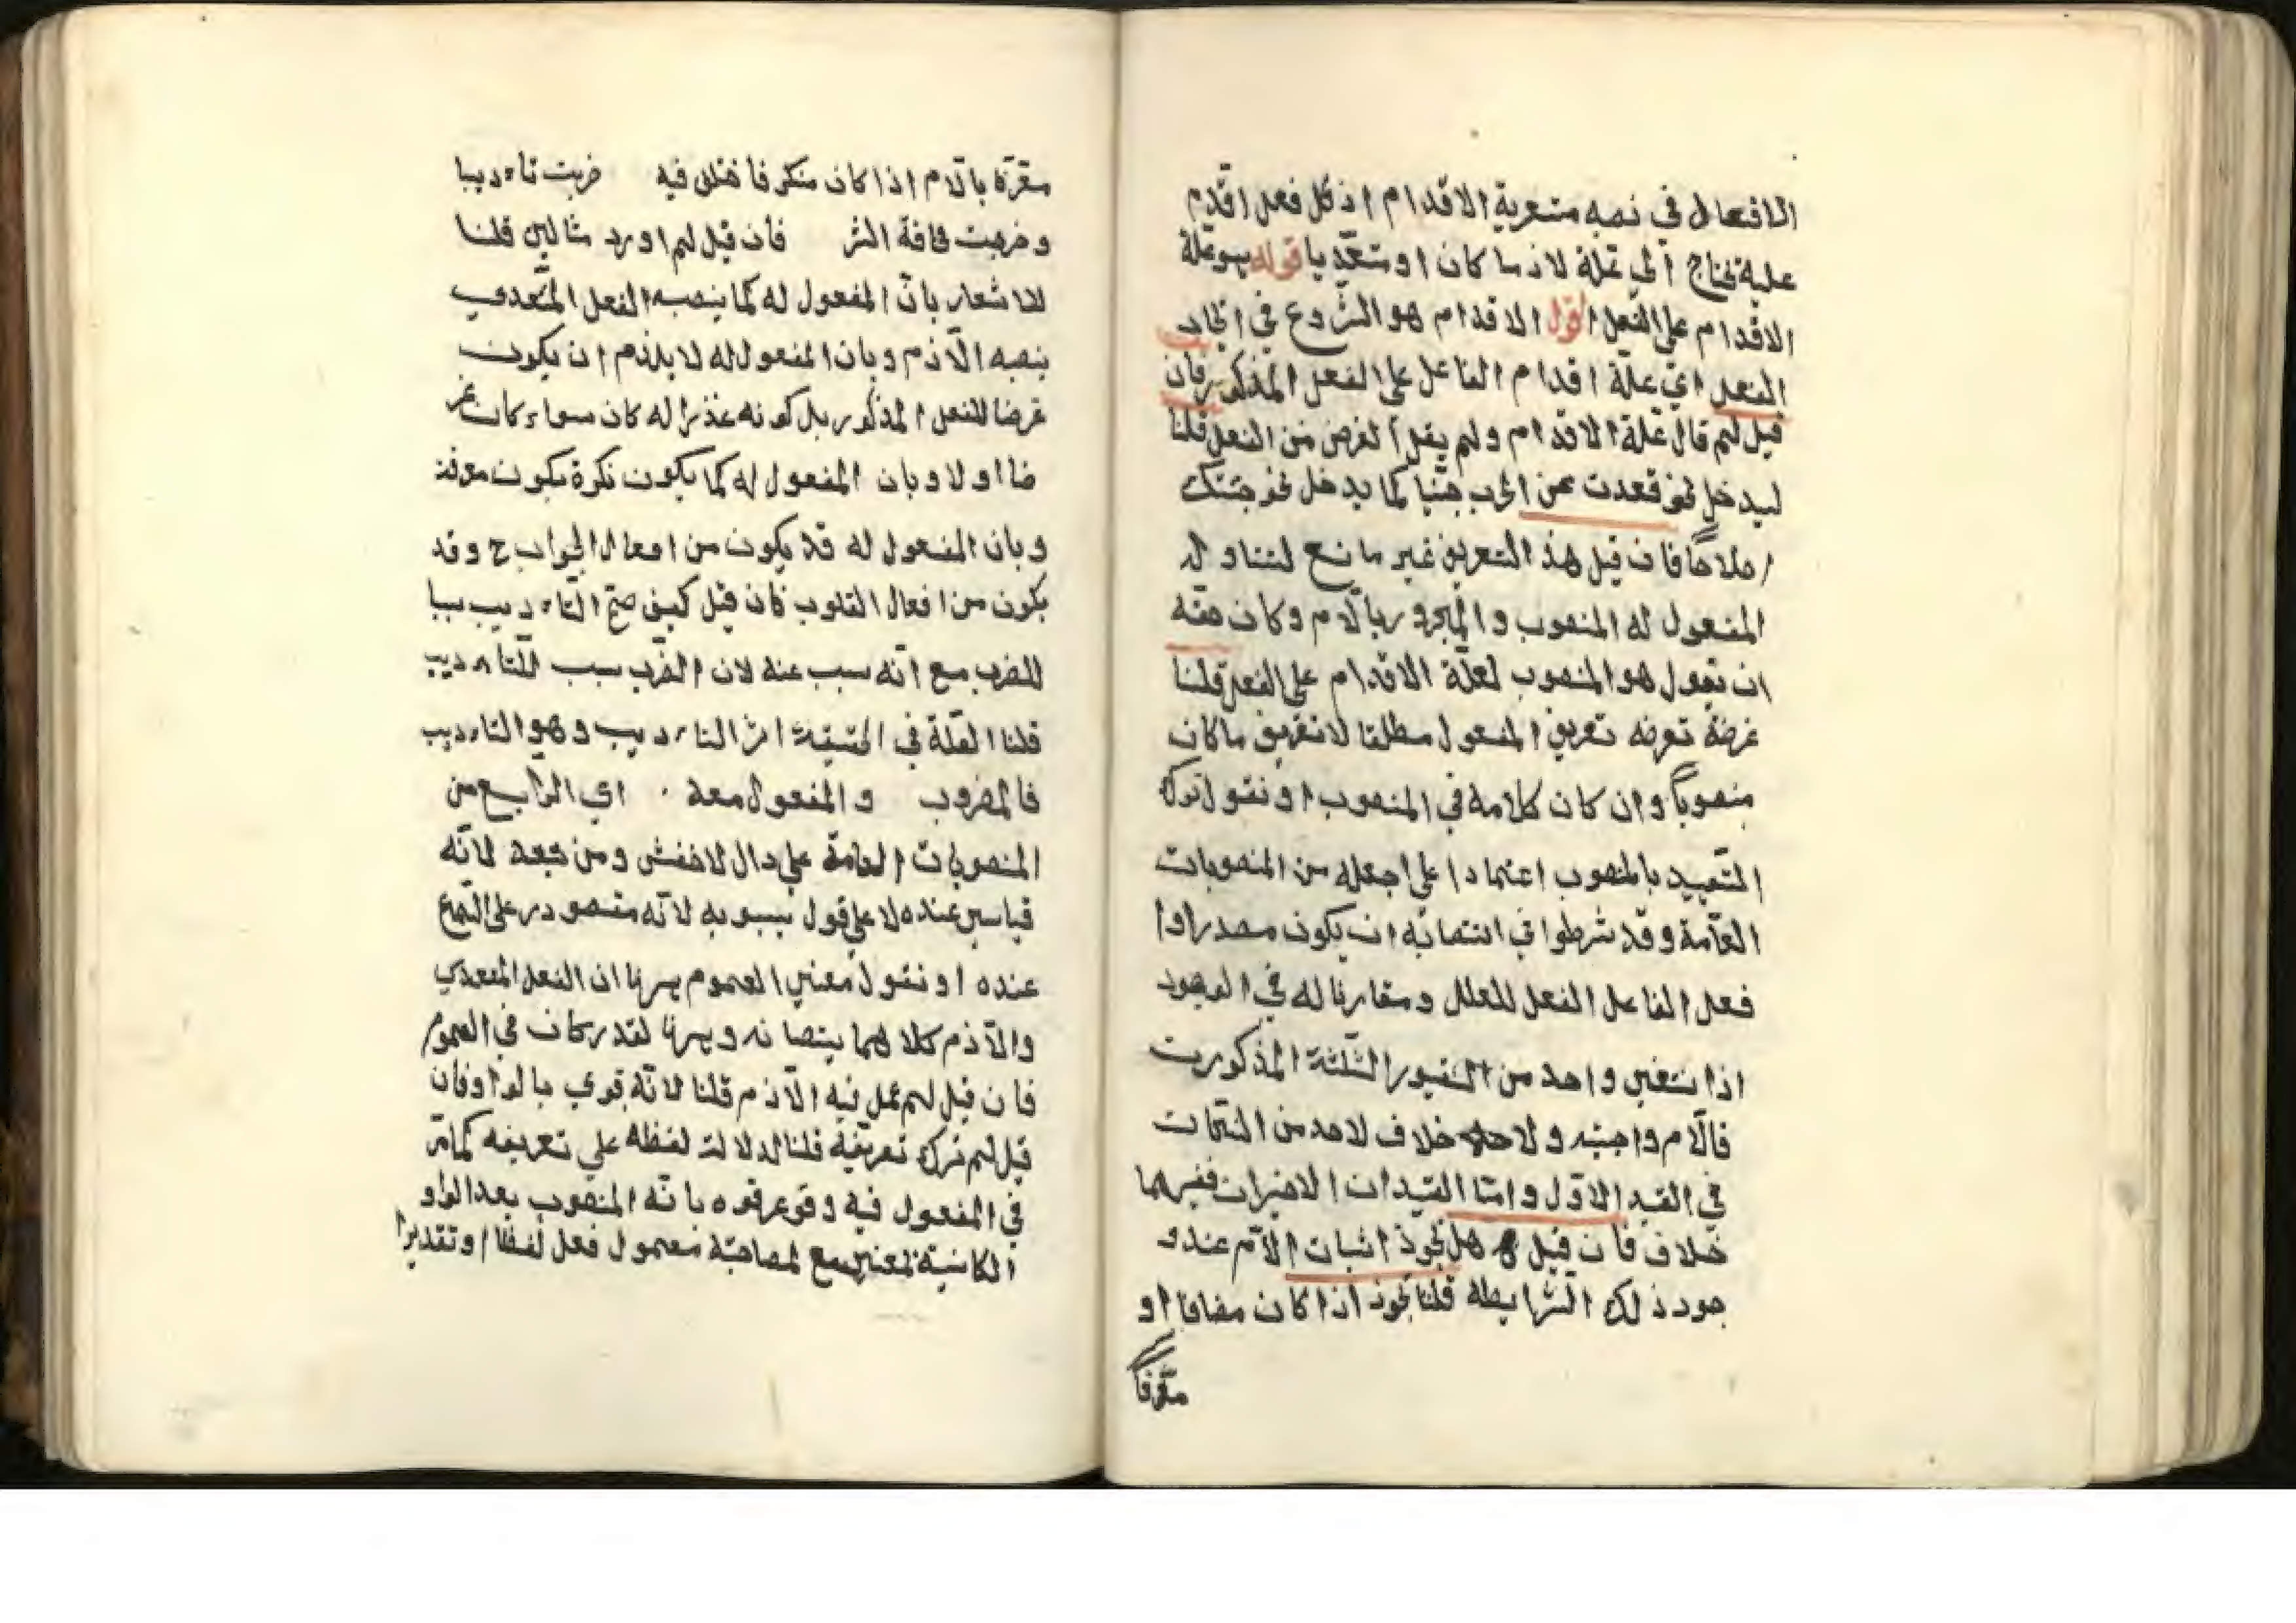 الافعال في نصبه متعدية الاقدام اذ كل فعل اقدم
عليه يحتاج الى علة لازما كان او متعديا قوله هو علة
الاقدام على الفعل اقول الاقدام هو الشروع في ايجاد
الفعل اي علة اقدام الفاعل على الفعل المذكور فان
قيل لم قال علة الاقدام ولم يقل الغرض من الفعل قلنا
ليدخل نحو قعدت عن الحرب جبنا كما يدخل نحو جئتك
اصلاحا فان قيل هذ التعريف غير مانع لتناوله
المفعول له المنصوب والمجرور باللام وكان حقه
ان يقول هو المنصوب لعلة الاقدام على الفعل قلنا
غرضه تعريف المفعول مطلقا لا تعريف ما كان
منصوبا وان كان كلامه في المنصوب او نقول ترك
التقييد بالمنصوب اعتمادا على اجعله من المنصوبات
العامة وقد شرطوا في انتصابه ان يكون مصدرا و
فعل الفاعل الفعل المعلل ومقارنا له في الوجود
اذا انتفى واحد من القيود الثلثة المذكورت
فاللام واجبه ولا خلاف لاحد من النحات
في القيد الاول واما القيدان الاخيران ففيهما
خلاف فان قيل هل يجوز اثبات اللام عند و
جود ذلك الشرايط قلنا يجوز اذا كان مضافا او
معرفا
مقرة باللام اذا كان منكر فا ختلف فيه ضربت تاءديبا
وضربت مخافة الشر فان قيل لم اورد مثالين قلنا
للاشعار بان المفعول له كما ينصبه الفعل المتعدي
ينصبه اللازم وبان المفعول له لا يلزم ان يكون
غرضا للفعل المذكور بل كونه عذرا له كان سواء كان غر
ضا او لا وبان المفعول له كما يكون نكرة يكون معرفة
وبان المفعول له قد يكون من افعال الجوارح وقد
يكون من افعال القلوب فان قيل كيف صح التاءديب سببا
للضرب مع انه سبب عنه لان الضرب سبب للتاءديب
قلنا العلة في الحقيقة اثر التاءديب وهو التاءديب
فالمضروب والمفعول معه . اي الرابع من
المنصوبات العامة على دال لاخفش ومن تبعه لانه
قياسي عنده لا على قول سيبويه لانه مقصور على السماع
عنده او نقول معنى العموم ههنا ان الفعل المتعدي
واللازم كلاهما ينصبانه وههنا لقدر كان في العموم
فان قيل لم عمل فيه اللازم قلنا لانه قوي بالواو فان
قيل لم ترك تعريفه قلنا لدلالة لفظه على تعريفه كما مر
في المفعول فيه وقد عرفوه بانه المنصوب بعد الواو
الكائنة لمعنى مع لمصاحبة معمول فعل لفظا او تقديرا